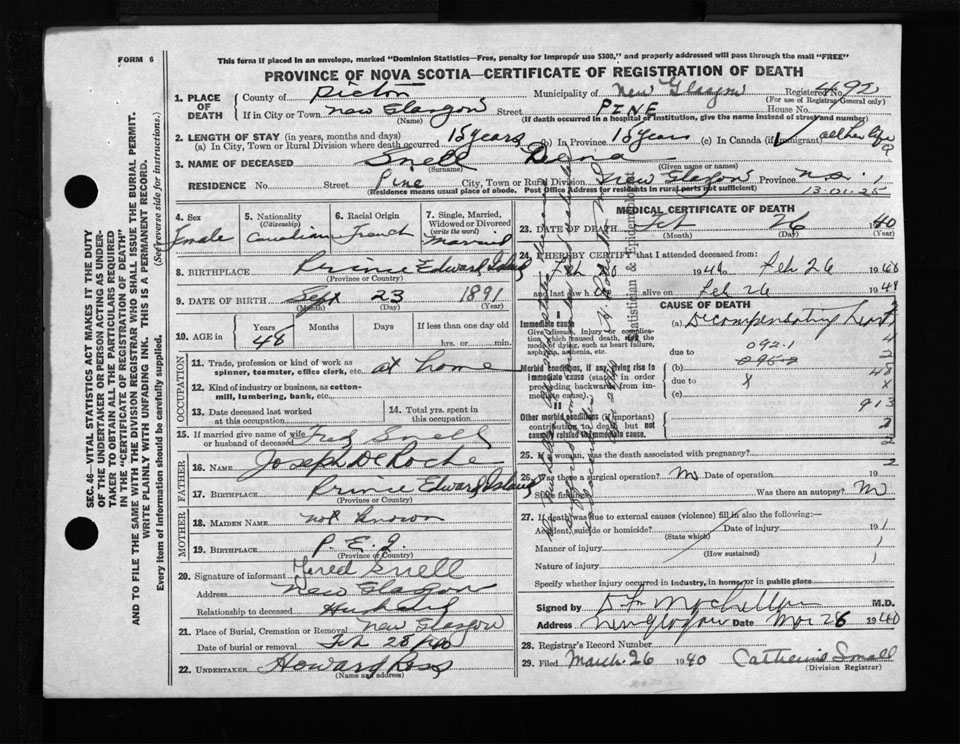 FORM 6
This form if placed in an envelope, marked "Dominion Statistics—Free, penalty for improper use $300," and properly addressed will pass through the mail "FREE"
PROVINCE OF NOVA SCOTIA—CERTIFICATE OF REGISTRATION OF DEATH
SEC. 46—VITAL STATISTICS ACT MAKES IT THE DUTY
OF THE UNDERTAKER OR PERSON ACTING AS UNDER-
TAKER TO OBTAIN ALL THE PARTICULARS REQUIRED
IN THE "CERTIFICATE OF REGISTRATION OF DEATH"
AND TO FILE THE SAME WITH THE DIVISION REGISTRAR WHO SHALL ISSUE THE BURIAL PERMIT.
WRITE PLAINLY WITH UNFADING INK. THIS IS A PERMANENT RECORD.
Every item of information should be carefully supplied.
(See reverse side for instructions.)
1. PLACE OF DEATH
County of Pictou Municipality of New Glasgow Registered No. 92
(For use of Registrar General only)
If in City or Town New Glasgow Street PINE House No.
(Name) (If death occurred in a hospital or institution, give the name instead of street and number)
2. LENGTH OF STAY (in years, months and days)
(a) In City, Town or Rural Division where death occurred 15 years (b) In Province 15 years (c) In Canada (if immigrant) all her life
3. NAME OF DECEASED Snell
(Surname) (Given name or names)
RESIDENCE No. Street Pine City, Town or Rural Division New Glasgow Province N.S.
(Residence means usual place of abode. Post Office Address for residents in rural parts not sufficient) 13-01-25
4. Sex
Female
5. Nationality
(Citizenship)
Canadian
6. Racial Origin
French
7. Single, Married, Widowed or Divorced
(write the word)
Married
8. BIRTHPLACE Prince Edward Island
(Province or Country)
9. DATE OF BIRTH Sept 23 1891
(Month) (Day) (Year)
10. AGE in Years Months Days If less than one day old
48 hrs. or min.
OCCUPATION
11. Trade, profession or kind of work as
spinner, teamster, office clerk, etc. at home
12. Kind of industry or business, as cotton-
mill, lumbering, bank, etc.
13. Date deceased last worked
at this occupation
14. Total yrs. spent in
this occupation
15. If married give name of wife
or husband of deceased Fred Snell
FATHER
16. NAME Joseph DeRoche
17. BIRTHPLACE Prince Edward Island
(Province or Country)
MOTHER
18. MAIDEN NAME not known
19. BIRTHPLACE P.E.I.
(Province or Country)
20. Signature of informant Fred Snell
Address New Glasgow
Relationship to deceased Husband
21. Place of Burial, Cremation or Removal New Glasgow
Date of burial or removal Feb 28/40
22. UNDERTAKER Howard Ross
(Name and address)
MEDICAL CERTIFICATE OF DEATH
23. DATE OF DEATH Feb 26 1940
(Month) (Day) (Year)
24. I HEREBY CERTIFY that I attended deceased from:
Feb 20 1940 to Feb 26 1940
and last saw h alive on Feb 26 194
CAUSE OF DEATH
Immediate cause
Give disease, injury or complica-
tion which caused death, not the
mode of dying, such as heart failure,
asphyxia, asthenia, etc.
(a) Decompensating heart
Morbid conditions, if any, giving rise to
immediate cause (stated in order
proceeding backwards from im-
mediate cause).
due to 092.1
(b)
due to X
(c)
913
Other morbid conditions (if important)
contributing to death but not
causally related to immediate cause.
25. If a woman, was the death associated with pregnancy?
26. Was there a surgical operation? No Date of operation 19
State findings Was there an autopsy? No
27. If death was due to external causes (violence) fill in also the following:—
Accident, suicide or homicide? Date of injury 19
(State which)
Manner of injury
(How sustained)
Nature of injury
Specify whether injury occurred in industry, in home, or in public place
Signed by M.D.
Address New Glasgow Date 26 1940
28. Registrar's Record Number
29. Filed March 26 1940 Catherine Small
(Division Registrar)